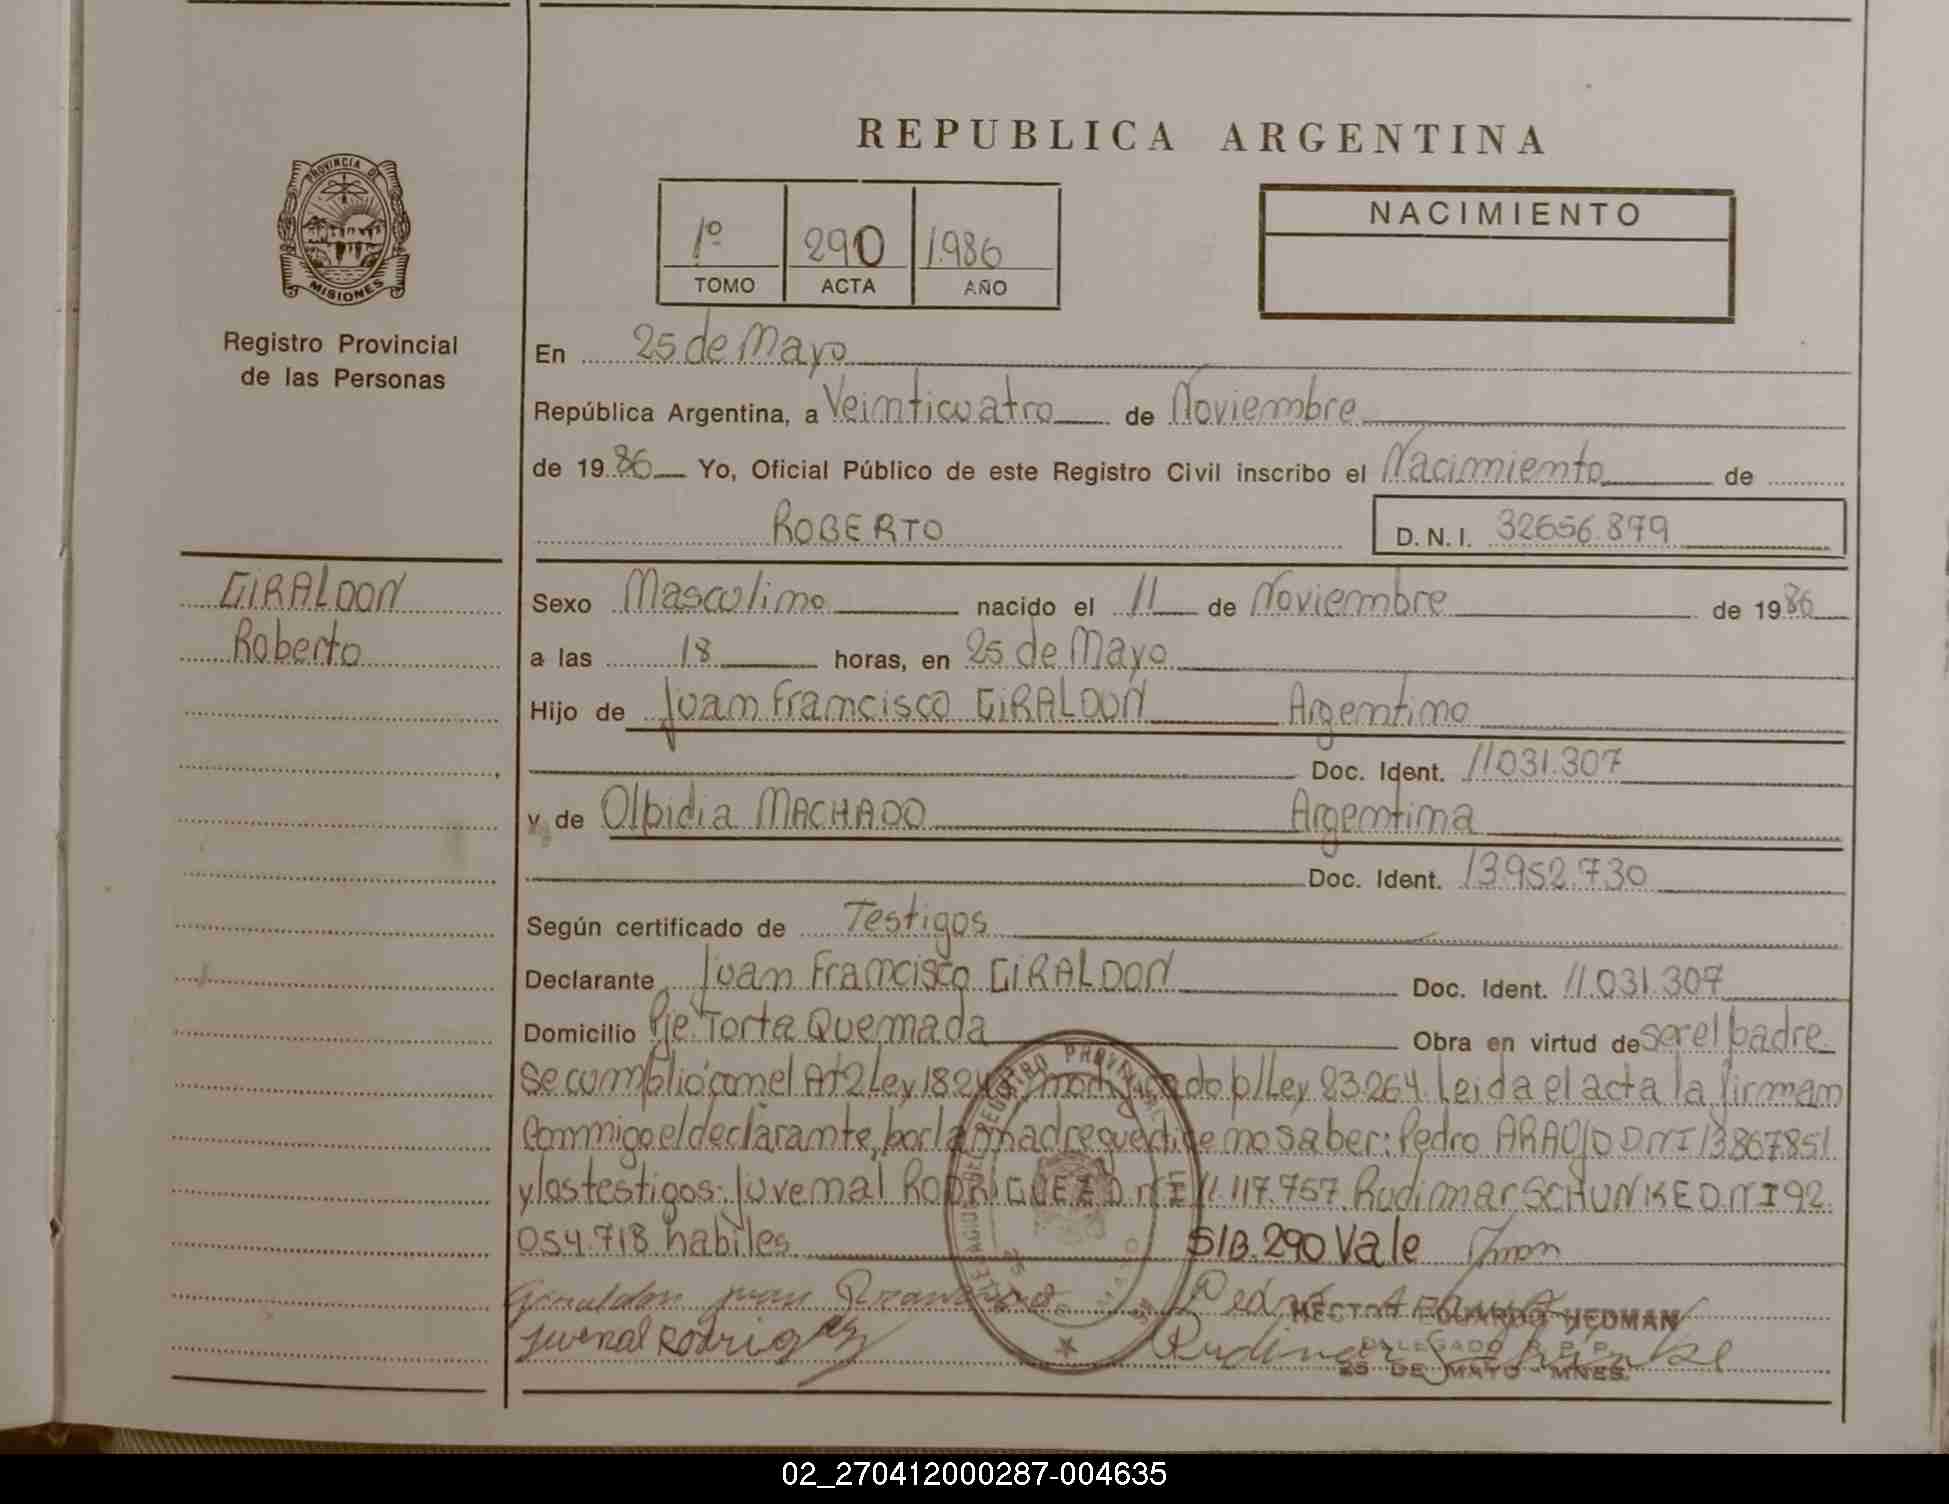 REPUBLICA ARGENTINA
PROVINCIA DE
MISIONES
Registro Provincial
de las Personas
1º 290 1.986
TOMO ACTA AÑO
NACIMIENTO
En 25 de Mayo
República Argentina, a Veinticuatro de Noviembre
de 19 86 Yo, Oficial Público de este Registro Civil inscribo el Nacimiento de
ROBERTO D.N.I. 32656.879
GIRALDON
Roberto
Sexo Masculino nacido el 11 de Noviembre de 19 86
a las 18 horas, en 25 de Mayo
Hijo de Juan Francisco GIRALDON Argentino
Doc. Ident. 11031.307
y de Olpidia MACHADO Argentina
Doc. Ident. 13952.730
Según certificado de Testigos
Declarante Juan Francisco GIRALDON Doc. Ident. 11.031.307
Domicilio Pje Torta Quemada Obra en virtud de ser el padre
Se cumplió con el Art 2 Ley 18.2 modificado p/Ley 23.264. Leida el acta la firman
conmigo el declarante, por la madre que dice no saber: Pedro ARAUJO DNI 13867851
y los testigos: Juvenal RODRIGUEZ DNI 11.117.757 Rudimar SCHUNKE DNI 92.
054.718 habiles S/B. 290 Vale
Giraldon Juan Francisco Pedro Araujo
HECTOR EDUARDO HEDMAN
Juvenal Rodriguez Rudimar Schunke
DELEGADO R. P. P.
25 DE MAYO - MNES.
REGISTRO PROVINCIAL
02_270412000287-004635